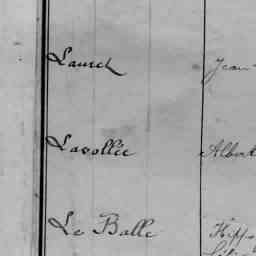 Lauret Jean
Lavollée Albert
Le Balle Hipp